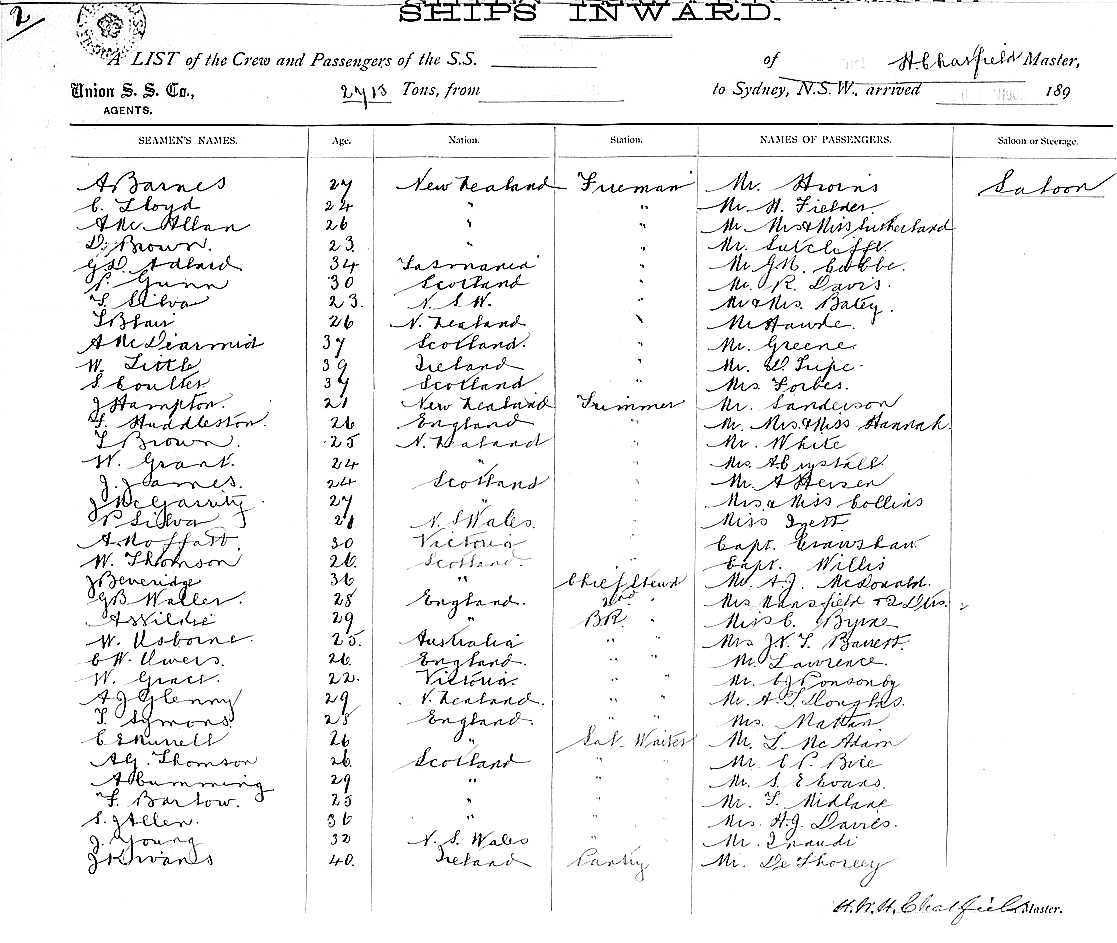 2
SHIPS INWARD.
A LIST of the Crew and Passengers of the S.S. of H Chatfield Master,
Union S. S. Co., 2713 Tons, from to Sydney, N.S.W., arrived 189
AGENTS.
SEAMEN'S NAMES. Age. Nation. Station. NAMES OF PASSENGERS. Saloon or Steerage.
A Barnes 27 New Zealand Fireman Mr. Saloon
C. Lloyd 24 " " Mr. H. Fielder
A Mc Allan 26 " " Mr Mrs & Miss Sutherland
D. Brown. 23 " " Mr. Sutcliffe.
G.D. Adlard 34 Tasmania " Mr J.N. Cubbe.
P. Gunn 30 Scotland " Mr. R. Davis.
T. Silva 23. N.S.W. " Mr & Mrs. Batey.
T Blair 26 N. Zealand " Mr Hawde.
A McDiarmid 37 Scotland. " Mr. Greene.
W. Little 39 Ireland " Mr. D. Tripe.
S. Coulter 37 Scotland " Mrs Forbes.
J Hampton. 21 New Zealand Trimmer Mr. Sanderson
T. Huddleston. 26 England " Mr. Mrs. & Miss Hannah.
T Brown. 25 N. Zealand " Mr. White
W. Grant. 24 " " Mrs.
J. James. 24 Scotland " Mr. A
J McGarrity 27 " " Mrs & Miss Collins
P Silva 21 N. S Wales. " Miss
A Moffatt. 30 Victoria " Capt. Crawshaw
W. Thomson 26. Scotland. " Capt. Willis
J Beveridge 36 " Chief Stewd Mr. A.J. McDonald.
G B Waller. 28 England. 2nd " Mrs Mansfield & 2 Dtrs.
A Wildie 29 " BR. " Miss C. Byrne
W. Osborne. 25. Australia " " Mrs J.V.T. Barrett.
C W. Uwers. 26. England " " Mr. Lawrence.
W. Grace. 22. Victoria. " " Mr. C J Ponsonby
A J Glenny 29 N. Zealand. " " Mr. A. T Douglas.
T. Symons. 25 England. " " Mrs. Nathan
C E Murrell 26 " Sal. Waiter Mr. T. McAdam
A G. Thomson 26. Scotland " " Mr. C P. Brie
A Cumming 29 " " " Mr. S. E Evans.
T. Bartow. 25 " " " Mr. T. Midlane
S. J Allen. 36 " " " Mrs. H.J. Davies.
J. Young 32 N. S. Wales " " Mr. Inaudi
J Kirwans 40. Ireland Pantry Mr. De Thorcey
H.W.H. Chatfield Master.